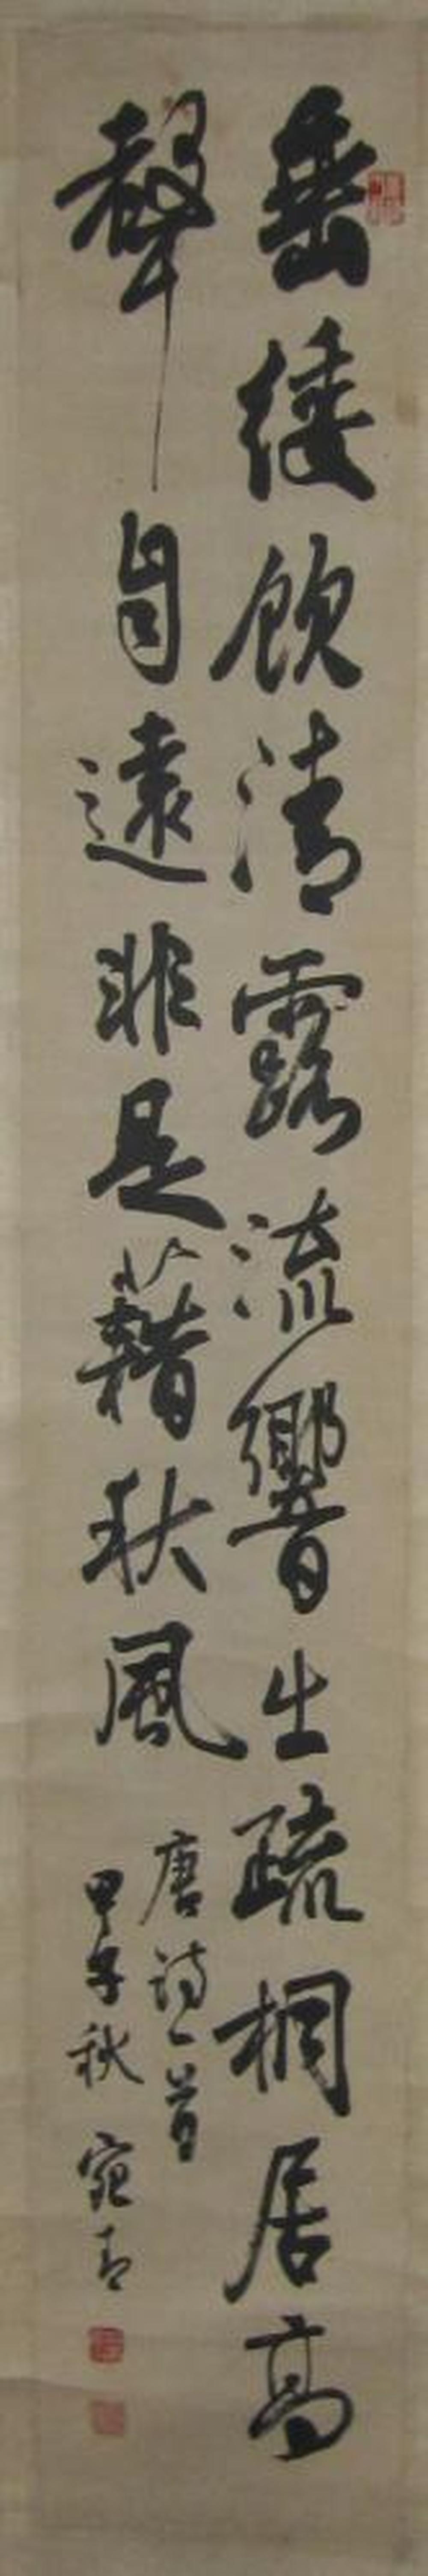 垂緌飲清露流響出疏桐居高
聲自遠非是藉秋風
唐詩一首
甲子秋 宛青